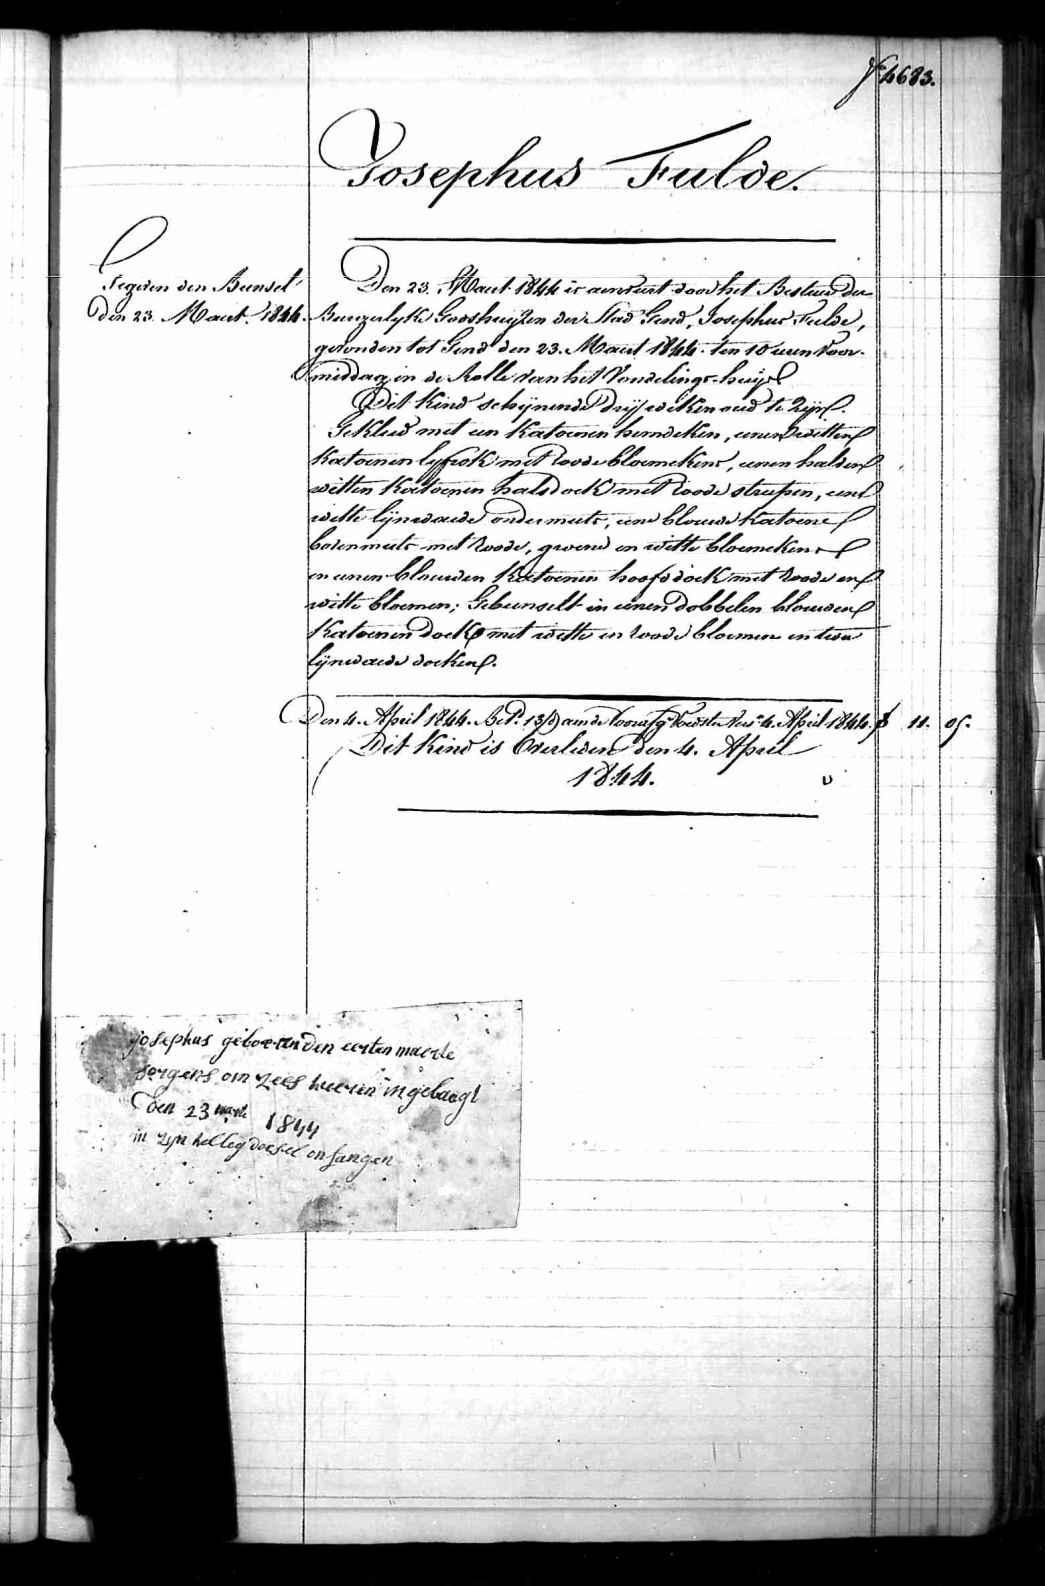 f° 4683.
Josephus Fulde.
Tegoien den Bunsel
den 23. Maert. 1844.
Den 23. Maert 1844 is aenveirt door het Bestuer der
Burgerlyke Godshuijzen der Stad Gend, Josephus Fulde,
gevonden tot Gend den 23. Maert 1844. ten 10 uren voor-
middag in de Rolle van het Vondelings-huijs
Dit Kind schijnende drij weken oud te zijn.
Gekleed met een Katoenen hemdeken, eenen witten
Katoenen lyfrok met roode bloemekens, eenen halven
witten Katoenen halsdoek met roode streepen, eene
witte lijnwaede ondermuts, eene blauwe Katoene
bovenmuts met roode, groene en witte bloemekens
en eenen blauwen Katoenen hoofddoek met roode en
witte bloemen; Gebunselt in eenen dobbelen blauwen
Katoenen doek met witte en roode bloemen en twee
lijnwaede doeken.
Den 4. April 1844. Bet. aen de Voedster 4. April 1844. f 11. 05.
Dit Kind is Overleden den 4. April
1844.
josephus geboren den eersten maerte
sorgens om zees hueren ingebragt
den 23 maerte 1844
in zyn helleg doesel onfangen